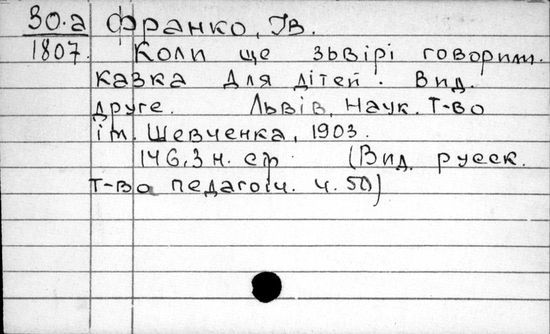 30.а Франко, Ів.
1807. Коли ще зьвірі говорили.
казка для дітей. Вид.
друге. Львів, Наук. Т-во
ім. Шевченка, 1903.
146,3 н. ст. (Вид. русск.
т-во педагогіч. ч. 50)